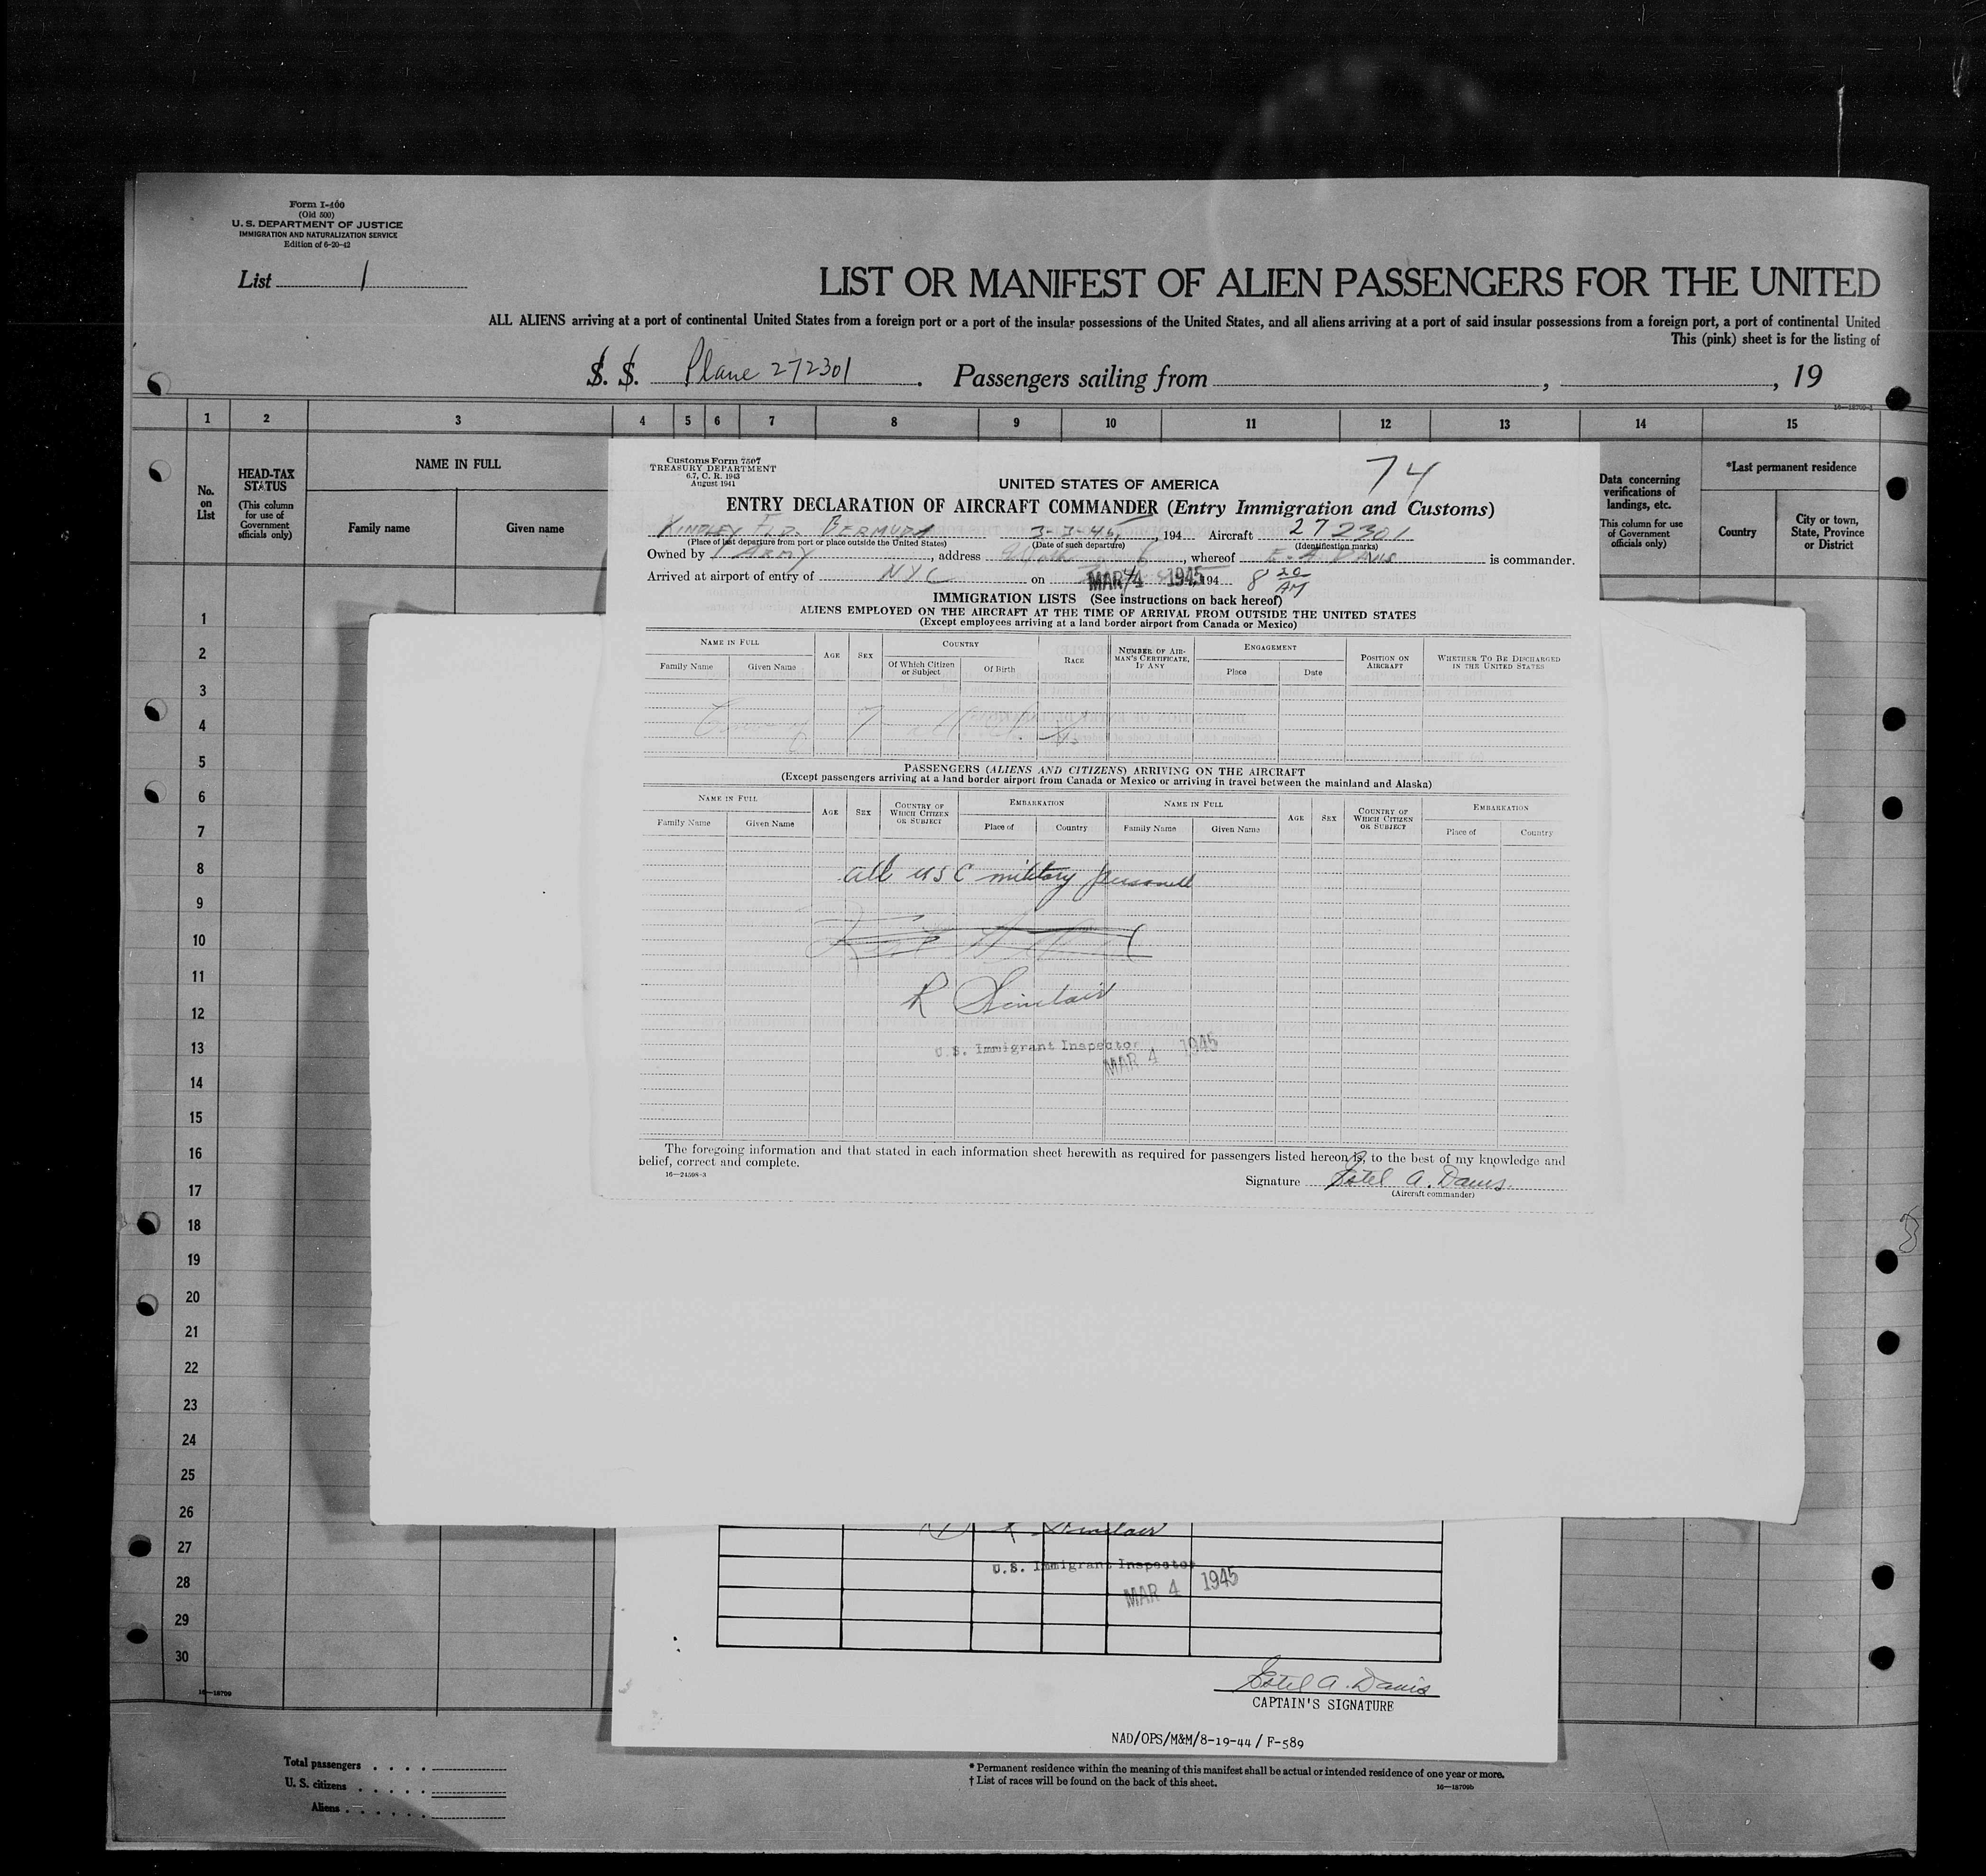 Form I-460
(Old 500)
U. S. DEPARTMENT OF JUSTICE
IMMIGRATION AND NATURALIZATION SERVICE
Edition of 6-20-42
List 1
LIST OR MANIFEST OF ALIEN PASSENGERS FOR THE UNITED
ALL ALIENS arriving at a port of continental United States from a foreign port or a port of the insular possessions of the United States, and all aliens arriving at a port of said insular possessions from a foreign port, a port of continental United
This (pink) sheet is for the listing of
S. S. Plane 272301 . Passengers sailing from , , 19
1 2 3 4 5 6 7 8 9 10 11 12 13 14 15
No. on List
HEAD-TAX STATUS
(This column for use of Government officials only)
NAME IN FULL
Family name Given name
Data concerning verifications of landings, etc.
(This column for use of Government officials only)
*Last permanent residence
Country City or town, State, Province or District
Customs Form 7507
TREASURY DEPARTMENT
6.7, C. R. 1943
August 1941
74
UNITED STATES OF AMERICA
ENTRY DECLARATION OF AIRCRAFT COMMANDER (Entry Immigration and Customs)
KINDLEY FLD. BERMUDA 3-3-45, 194 Aircraft 272301
(Place of last departure from port or place outside the United States) (Date of such departure) (Identification marks)
Owned by ARMY , address , whereof E. A. DAVIS is commander.
Arrived at airport of entry of NYC on MAR 4 1945, 194 8 20 AM
IMMIGRATION LISTS (See instructions on back hereof)
ALIENS EMPLOYED ON THE AIRCRAFT AT THE TIME OF ARRIVAL FROM OUTSIDE THE UNITED STATES
(Except employees arriving at a land border airport from Canada or Mexico)
NAME IN FULL AGE SEX COUNTRY RACE NUMBER OF AIRMAN'S CERTIFICATE, IF ANY ENGAGEMENT POSITION ON AIRCRAFT WHETHER TO BE DISCHARGED IN THE UNITED STATES
Family Name Given Name Of Which Citizen or Subject Of Birth Place Date
7
PASSENGERS (ALIENS AND CITIZENS) ARRIVING ON THE AIRCRAFT
(Except passengers arriving at a land border airport from Canada or Mexico or arriving in travel between the mainland and Alaska)
NAME IN FULL AGE SEX COUNTRY OF WHICH CITIZEN OR SUBJECT EMBARKATION NAME IN FULL AGE SEX COUNTRY OF WHICH CITIZEN OR SUBJECT EMBARKATION
Family Name Given Name Place of Country Family Name Given Name Place of Country
all USC military personell
R Sinclair
U.S. Immigrant Inspector
MAR 4 1945
The foregoing information and that stated in each information sheet herewith as required for passengers listed hereon is, to the best of my knowledge and
belief, correct and complete.
16—24598-3
Signature Estel A. Davis
(Aircraft commander)
1
2
3
4
5
6
7
8
9
10
11
12
13
14
15
16
17
18
19
20
21
22
23
24
25
26
27
28
29
30
16—18709
R Sinclair
U.S. Immigrant Inspector
MAR 4 1945
Estel A. Davis
CAPTAIN'S SIGNATURE
NAD/OPS/M&M/8-19-44/F-589
Total passengers
U. S. citizens
Aliens
* Permanent residence within the meaning of this manifest shall be actual or intended residence of one year or more.
† List of races will be found on the back of this sheet.
16—18709b